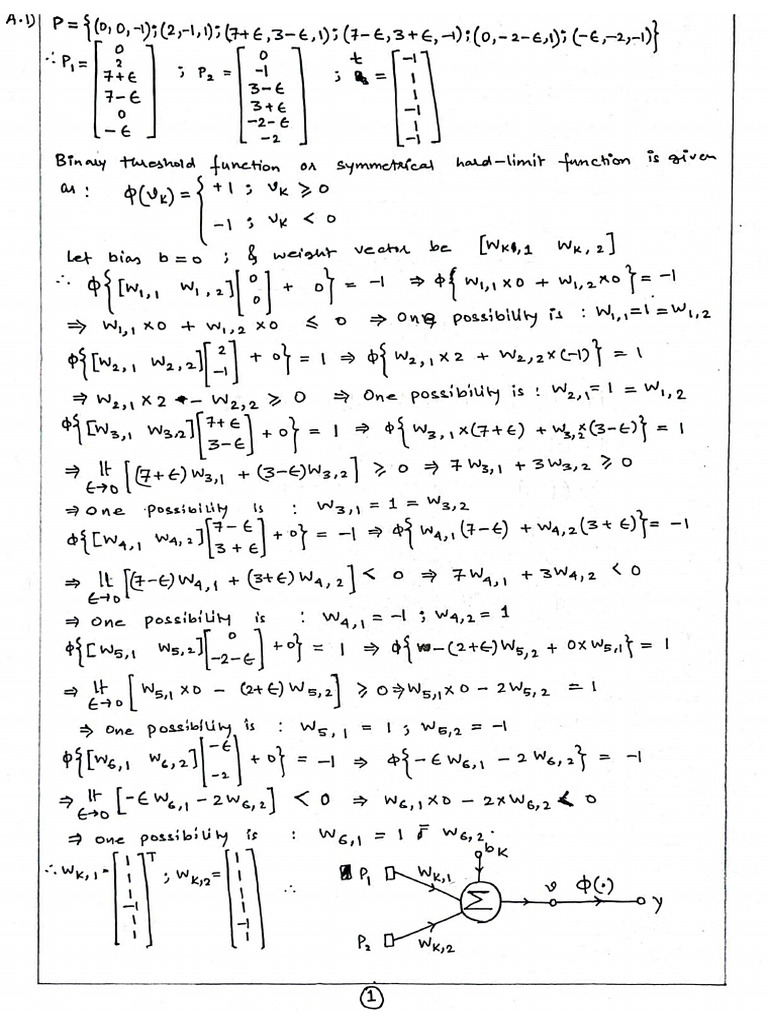 A.1) P = {(0,0,-1);(2,-1,1);(7+ϵ,3-ϵ,1);(7-ϵ,3+ϵ,-1);(0,-2-ϵ,1);(-ϵ,-2,-1)}
∴ P₁ = [0 2 7+ϵ 7-ϵ 0 -ϵ] ; P₂ = [0 -1 3-ϵ 3+ϵ -2-ϵ -2] ; t = [-1 1 1 -1 1 -1]
Binary threshold function or symmetrical hard-limit function is given
as : ϕ(v_K) = { +1 ; v_K ≥ 0
-1 ; v_K < 0
Let bias b=0 ; & weight vector be [W_K,1 W_K,2]
∴ ϕ{[W₁,₁ W₁,₂][0 0] + 0} = -1 ⇒ ϕ{W₁,₁×0 + W₁,₂×0} = -1
⇒ W₁,₁×0 + W₁,₂×0 ≤ 0 ⇒ One possibility is : W₁,₁=1=W₁,₂
ϕ{[W₂,₁ W₂,₂][2 -1] + 0} = 1 ⇒ ϕ{W₂,₁×2 + W₂,₂×(-1)} = 1
⇒ W₂,₁×2 - W₂,₂ ≥ 0 ⇒ One possibility is : W₂,₁=1=W₁,₂
ϕ{[W₃,₁ W₃,₂][7+ϵ 3-ϵ] + 0} = 1 ⇒ ϕ{W₃,₁×(7+ϵ) + W₃,₂×(3-ϵ)} = 1
⇒ lt ϵ→0 [(7+ϵ)W₃,₁ + (3-ϵ)W₃,₂] ≥ 0 ⇒ 7W₃,₁ + 3W₃,₂ ≥ 0
⇒ One possibility is : W₃,₁ = 1 = W₃,₂
ϕ{[W₄,₁ W₄,₂][7-ϵ 3+ϵ] + 0} = -1 ⇒ ϕ{W₄,₁(7-ϵ) + W₄,₂(3+ϵ)} = -1
⇒ lt ϵ→0 [(7-ϵ)W₄,₁ + (3+ϵ)W₄,₂] < 0 ⇒ 7W₄,₁ + 3W₄,₂ < 0
⇒ One possibility is : W₄,₁ = -1 ; W₄,₂ = 1
ϕ{[W₅,₁ W₅,₂][0 -2-ϵ] + 0} = 1 ⇒ ϕ{-(2+ϵ)W₅,₂ + 0×W₅,₁} = 1
⇒ lt ϵ→0 [W₅,₁×0 - (2+ϵ)W₅,₂] ≥ 0 ⇒ W₅,₁×0 - 2W₅,₂ = 1
⇒ One possibility is : W₅,₁ = 1 ; W₅,₂ = -1
ϕ{[W₆,₁ W₆,₂][-ϵ -2] + 0} = -1 ⇒ ϕ{-ϵW₆,₁ - 2W₆,₂} = -1
⇒ lt ϵ→0 [-ϵW₆,₁ - 2W₆,₂] < 0 ⇒ W₆,₁×0 - 2×W₆,₂ < 0
⇒ One possibility is : W₆,₁ = 1 = W₆,₂.
∴ W_K,1 = [1 1 1 -1 1 1]ᵀ ; W_K,2 = [1 1 1 1 -1 1] ∴
b_K
P₁ W_K,1 Σ v ϕ(·) y
P₂ W_K,2
1